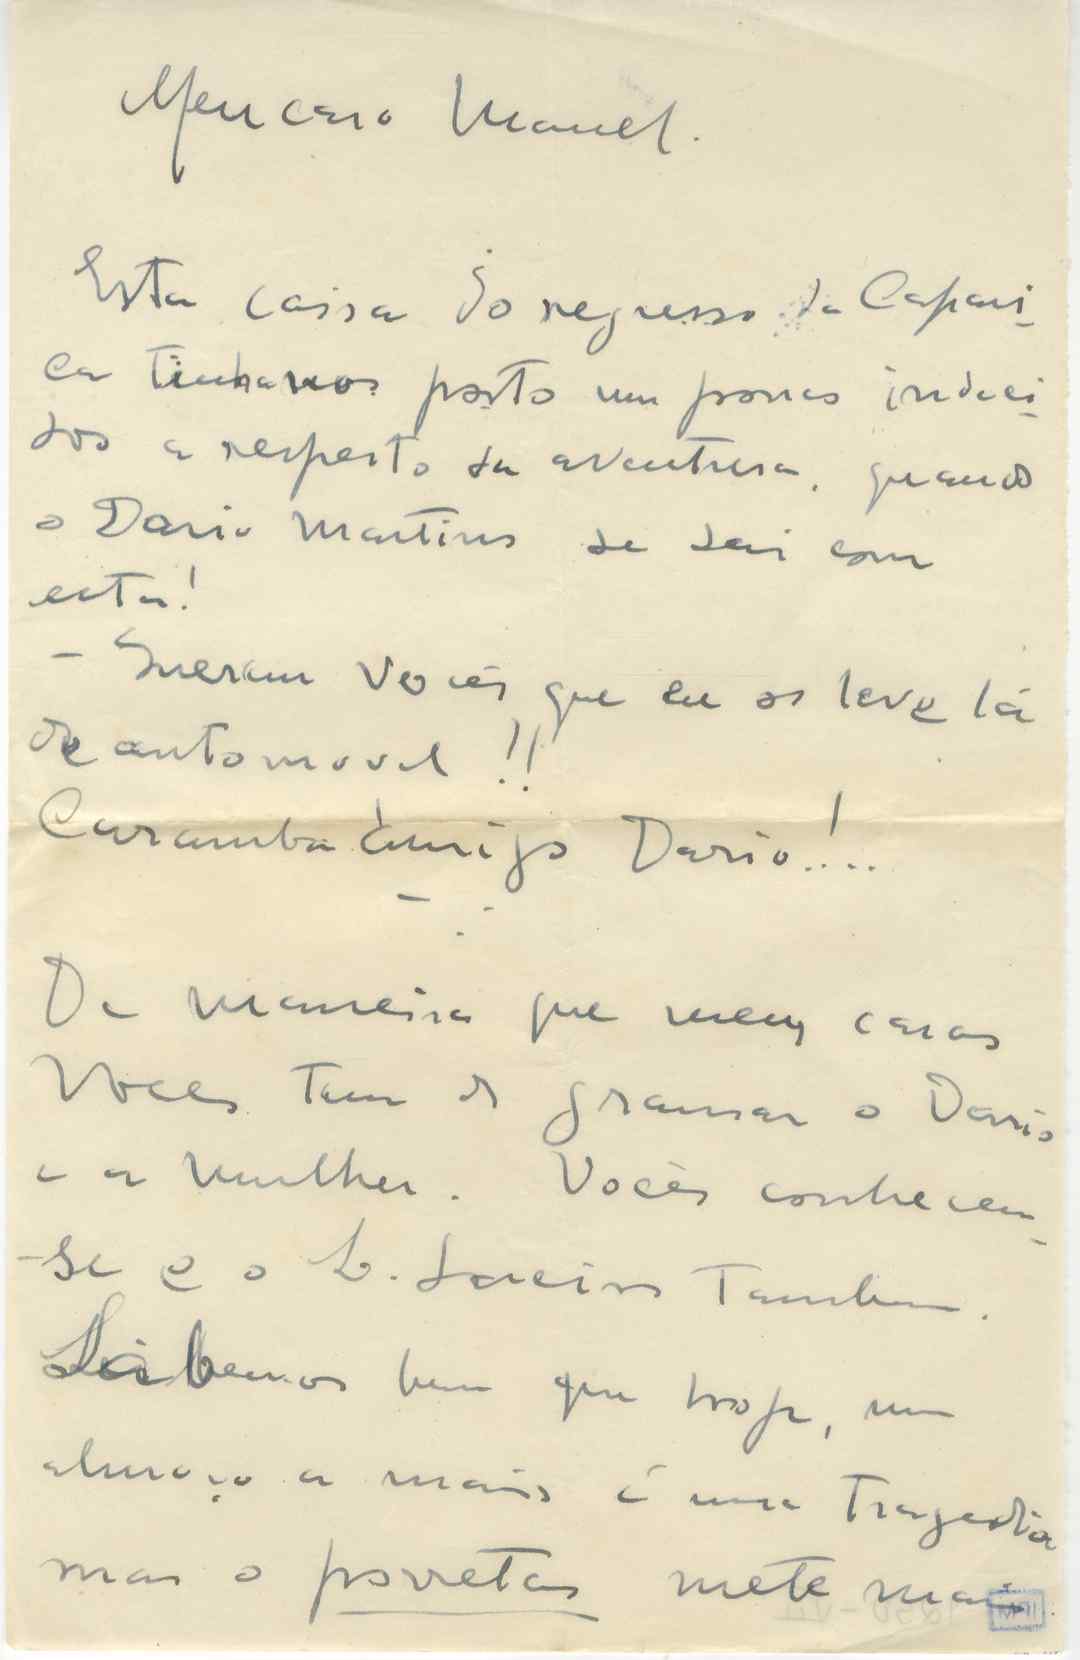 Meu caro Manel.
Esta coisa do regresso da Capari-
ca tinhanos posto um pouco indeci-
sos a respeito da aventura, quando
o Dario Martins se sai com
esta!
- Queram Vocês que eu os leve lá
de automovel!!
Caramba amigo Dario!...
De maneira que meus caros
Voces tem de gramar o Dario
e a mulher. Vocês conhecem-
-se e o L. tambem.
Sabemos bem que hoje, um
almoço a mais é uma tragedia
mas o povretas mete mais